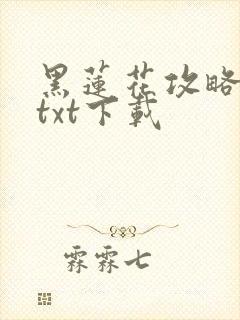 黑蓮花攻略
txt下載
霖霖七